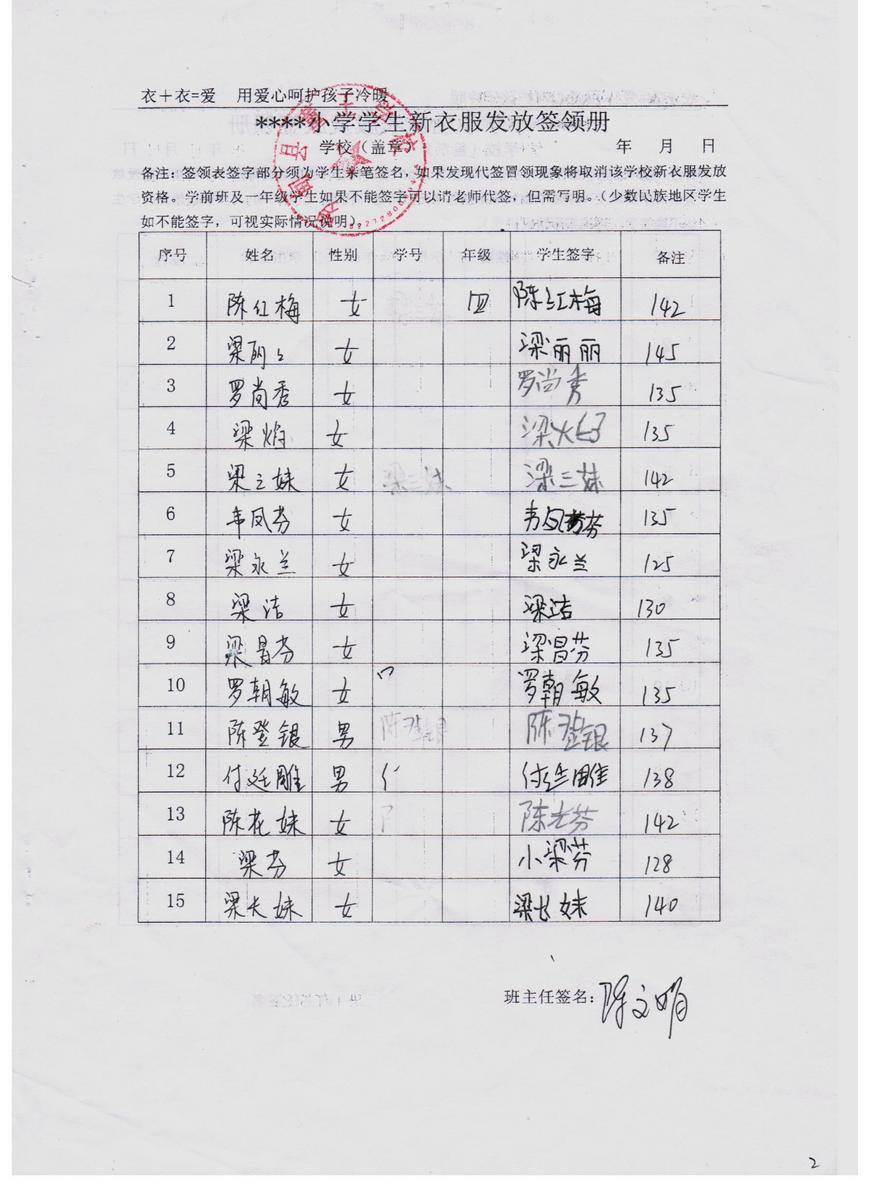 衣＋衣=爱 用爱心呵护孩子冷暖
****小学学生新衣服发放签领册
学校（盖章） 年 月 日
备注：签领表签字部分须为学生亲笔签名，如果发现代签冒领现象将取消该学校新衣服发放
资格。学前班及一年级学生如果不能签字可以请老师代签，但需写明。（少数民族地区学生
如不能签字，可视实际情况说明）
序号 姓名 性别 学号 年级 学生签字 备注
1 陈红梅 女 四 陈红梅 142
2 梁丽丽 女 梁丽丽 145
3 罗尚秀 女 罗尚秀 135
4 女 135
5 梁三妹 女 梁三妹 142
6 韦凤芬 女 韦凤芬 135
7 梁永兰 女 梁永兰 125
8 梁洁 女 梁洁 130
9 梁昌芬 女 梁昌芬 135
10 罗朝敏 女 罗朝敏 135
11 陈登银 男 陈登银 137
12 付廷雕 男 138
13 陈花妹 女 142
14 梁芬 女 小梁芬 128
15 梁长妹 女 梁长妹 140
班主任签名：陈文娟
2